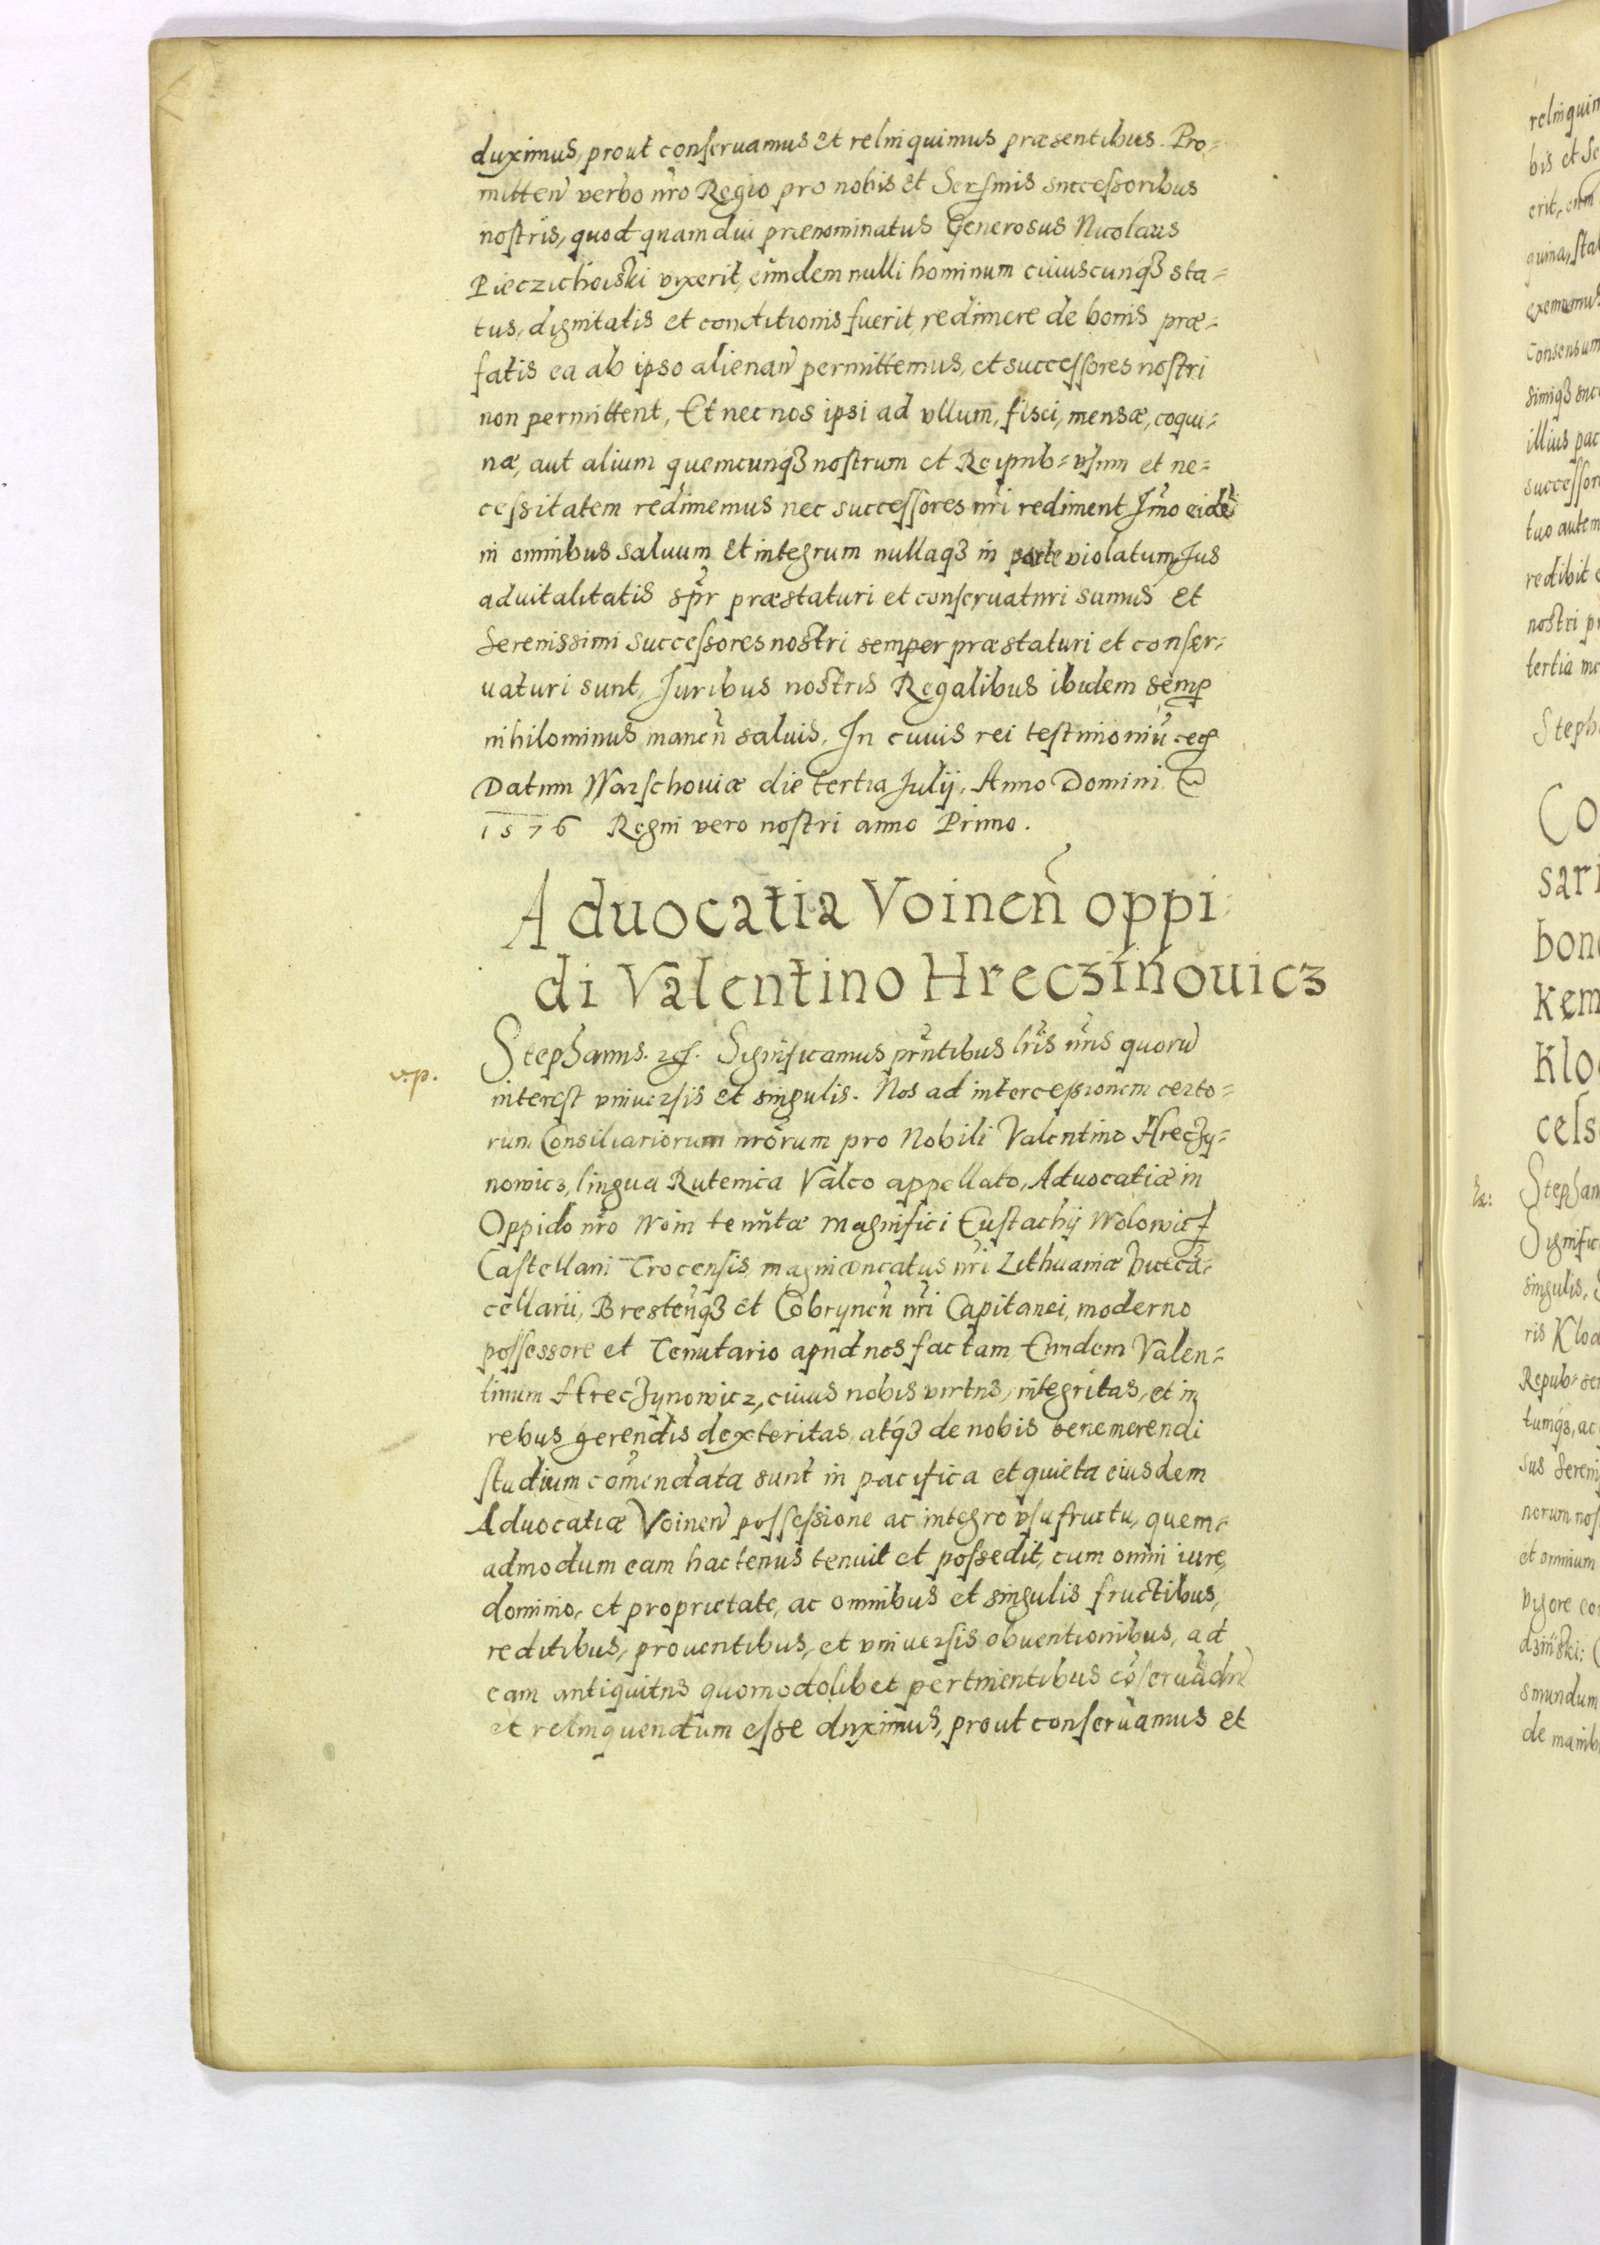 duximus, prout conseruamus et relinquimus præsentibus. Pro-
mitten̄ verbo nr̄o Regio pro nobis et Ser:smis successoribus
nostris, quod quamdiu prænominatus Generosus Nicolaus
Pieczichoiski vixerit, eundem nulli hominum cuiuscunqȝ sta-
tus, dignitatis et conditionis fuerit, redimere de bonis præ-
fatis ea ab ipso alienan̄ permittemus, et successores nostri
non permittent, Et nec nos ipsi ad vllum, fisci, mensæ, coqui-
næ, aut alium quemcunqȝ nostrum et Reipub= vsum et ne-
cessitatem redimemus nec successores nr̄i rediment Imo eidē
in omnibus saluum et integrum nullaqȝ in parte violatum Jus
aduitalitatis sp̄r præstaturi et conseruaturi sumus et
Serenissimi successores nostri semper præstaturi et conser-
uaturi sunt, Juribus nostris Regalibus ibidem semp
nihilominus manen̄ saluis. In cuius rei testimoniū
Datum Warschouiæ die tertia Julij, Anno Domini
1576 Regni vero nostri anno Primo.
Aduocatia Voinen̄ oppi
di Valentino Hreczinouicz
Stephanus. Significamus pr̄ntibus lr̄is nr̄is quorū
v.p.
interest vniuersis et singulis. Nos ad intercessionem certo-
rum Consiliariorum nr̄orum pro Nobili Valentino Hreczy-
nowicz, lingua Rutenica Valco appellato, Aduocatiæ in
Oppido nr̄o Woin tenutæ magnifici Eustachij Wolowicz
Castellani Trocensis, magni Ducatus nr̄i Lithuaniæ Vicecā-
cellarii, Bresten̄qȝ et Cobrynen̄ nr̄i Capitanei, moderno
possessore et Tenutario apud nos factam Eundem Valen-
tinum Hreczynowicz, cuius nobis virtus, integritas, et in
rebus gerendis dexteritas, atqȝ de nobis benemerendi
studium com̄endata sunt in pacifica et quieta eiusdem
Aduocatiæ Voinen̄ possessione ac integro vsufructu, quem-
admodum eam hactenus tenuit et possedit, cum omni iure,
dominio, et proprietate, ac omnibus et singulis fructibus,
reditibus, prouentibus, et vniuersis obuentionibus, ad
eam antiquitus quomodolibet pertinentibus cōseruādū
et relinquendum esse duximus, prout conseruamus et